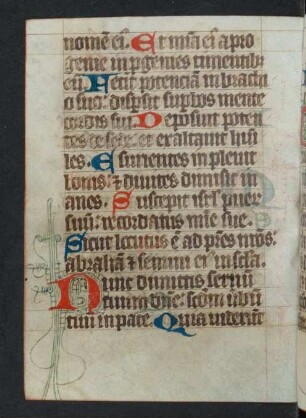 nomē eī. Et mīa eī a pro
genie in p̄genies timentibꝫ
eū. Fecit potenciam in brachi
o suo: dispsit supbos mente
cordis sui. Deposuit poten
tes de sede: et exaltauit hūi
les. Esurientes impleuit
bonis: ⁊ diuites dimisit in
anes. Suscepit isrl puer
suū: recordatus mīe sue.
Sicut locutus ē ad pr̄es nrōs:
abrahā ⁊ semini eī in sc̄la.
Nunc dimittis seruū
tuum dn̄e: scdm uerbū
tuū in pace. Quia uiderūt